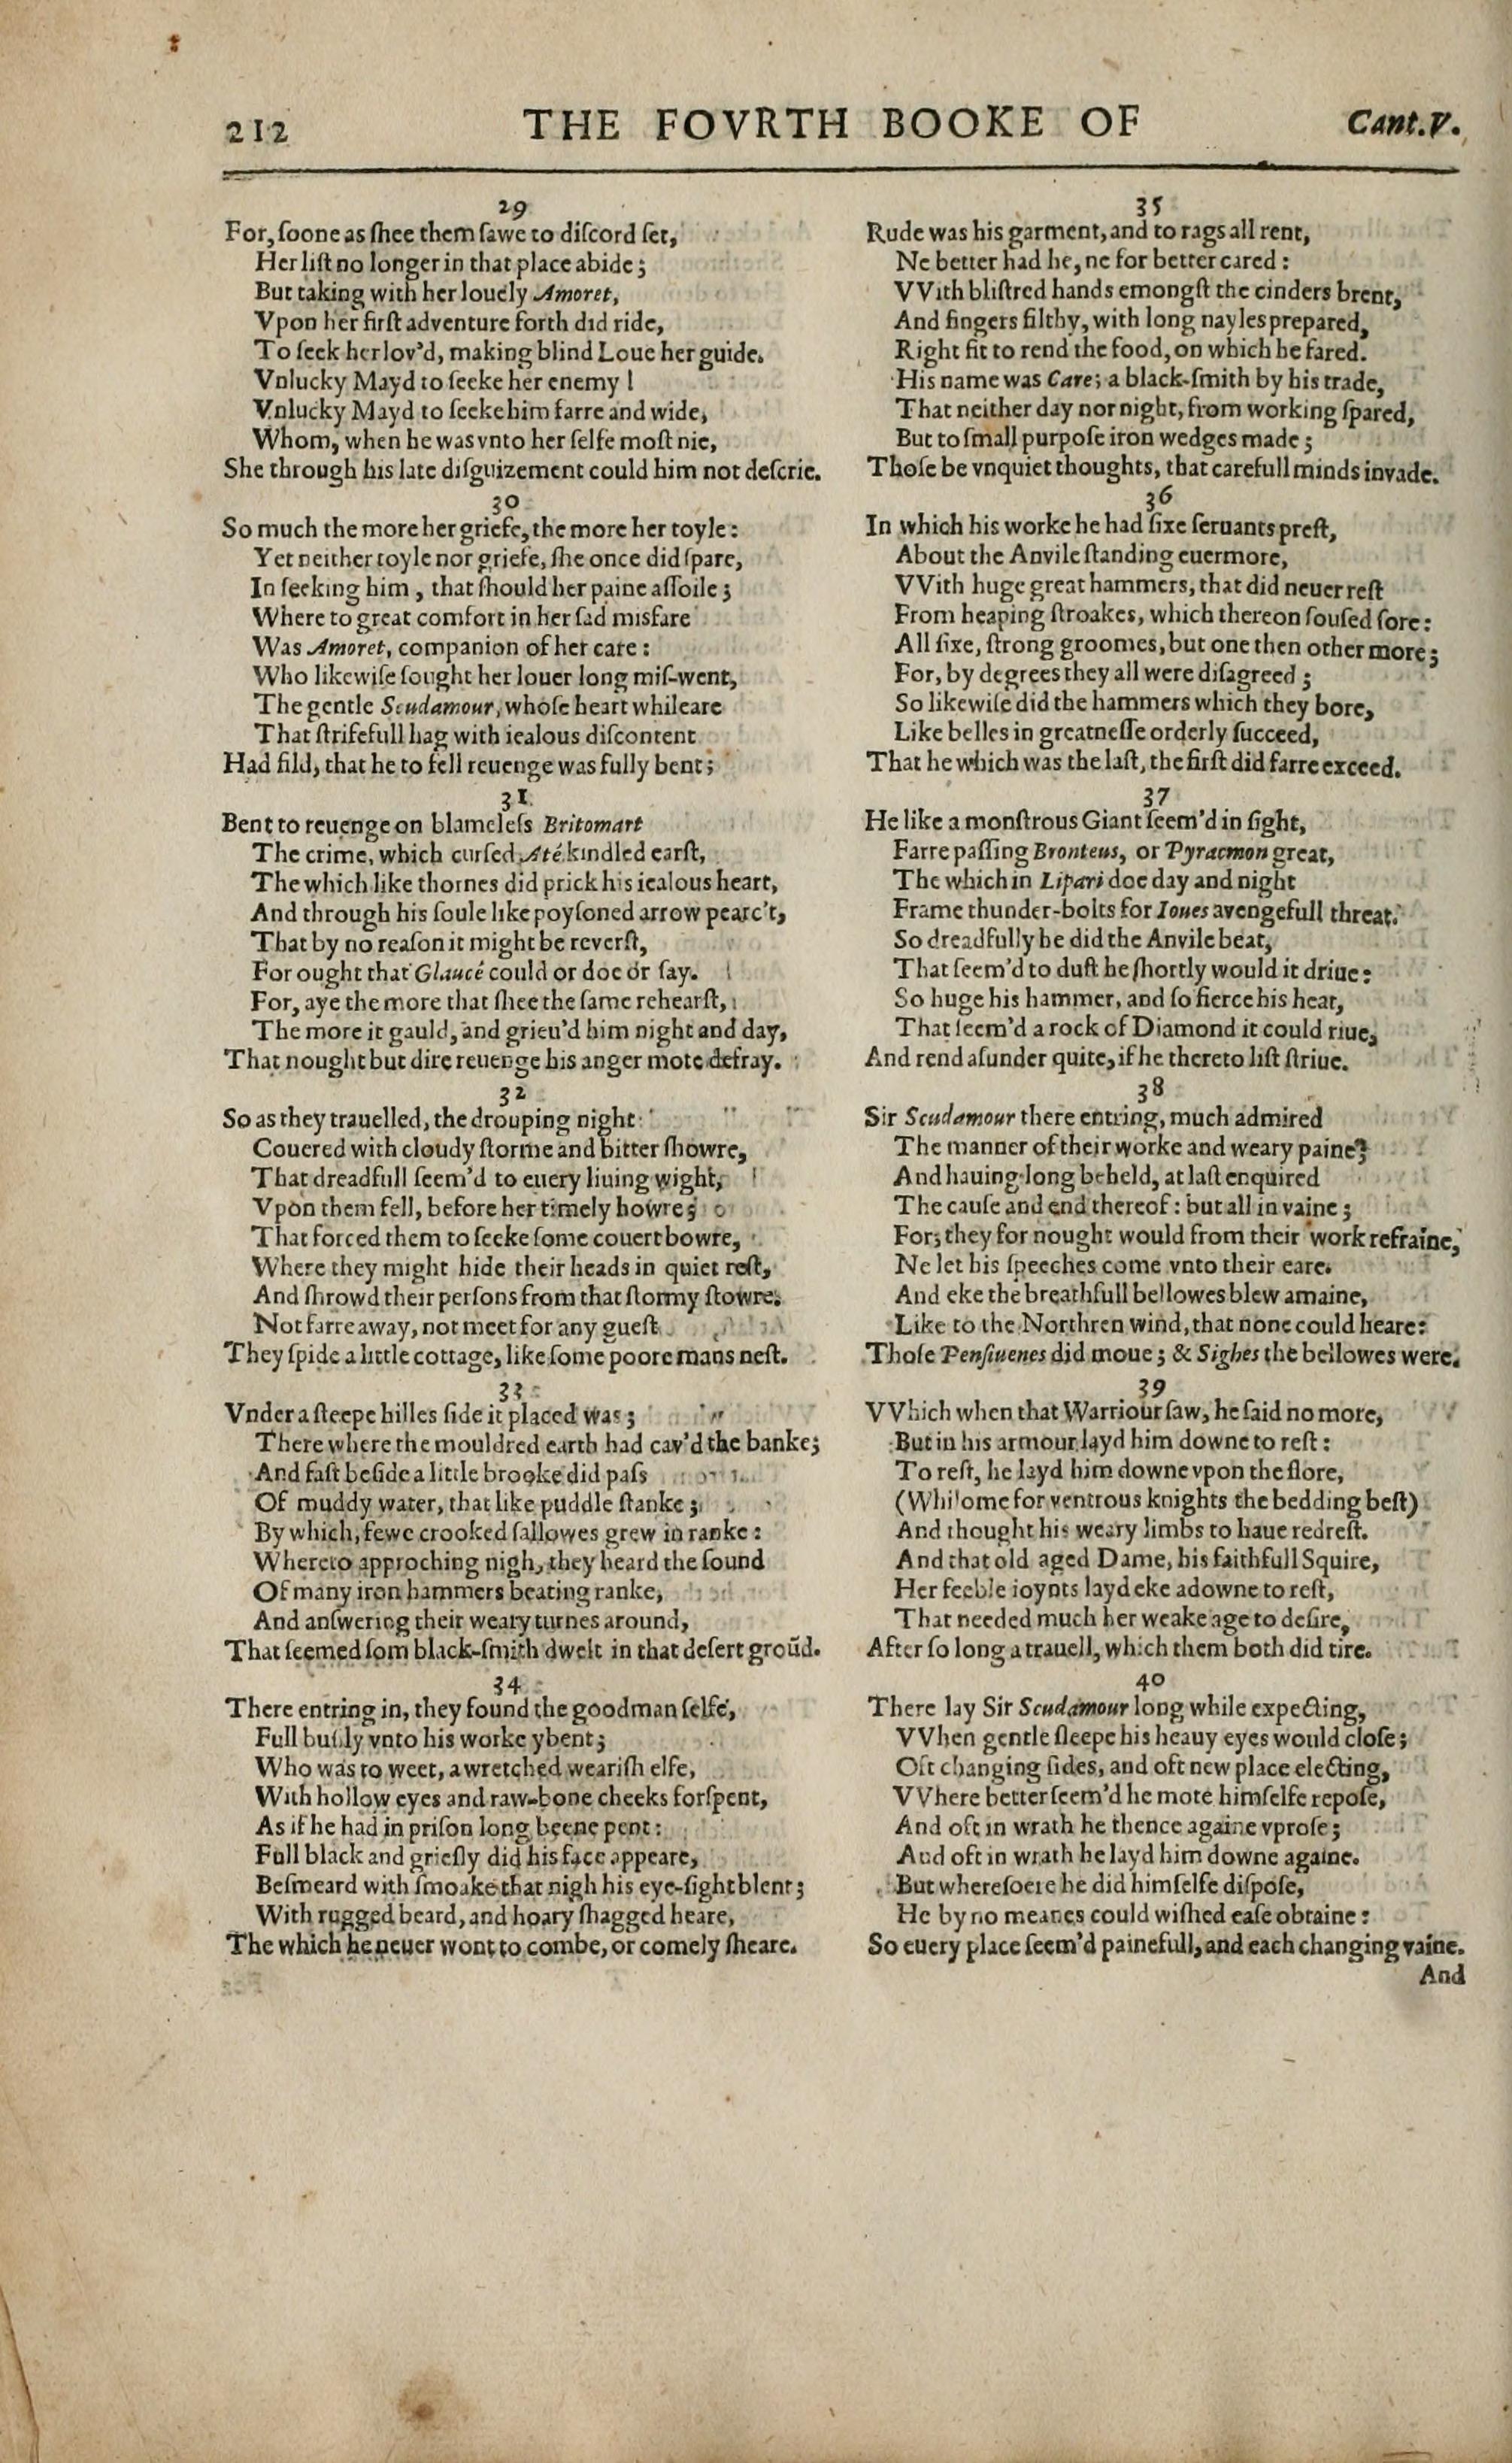 212 THE FOVRTH BOOKE OF Cant.V.
29
For, ſoone as ſhee them ſawe to diſcord ſet,
Her liſt no longer in that place abide;
But taking with her louely Amoret,
Vpon her firſt adventure forth did ride,
To ſeek her lov'd, making blind Loue her guide.
Vnlucky Mayd to ſeeke her enemy!
Vnlucky Mayd to ſeeke him farre and wide,
Whom, when he was vnto her ſelfe moſt nie,
She through his late diſguizement could him not deſcrie.
30
So much the more her griefe, the more her toyle:
Yet neither toyle nor griefe, ſhe once did ſpare,
In ſeeking him, that ſhould her paine aſſoile;
Where to great comfort in her ſad misfare
Was Amoret, companion of her care:
Who likewiſe ſought her louer long miſ-went,
The gentle Scudamour, whoſe heart whileare
That ſtrifefull hag with iealous diſcontent
Had fild, that he to fell reuenge was fully bent;
31
Bent to reuenge on blameleſs Britomart
The crime, which curſed Até kindled earſt,
The which like thornes did prick his iealous heart,
And through his ſoule like poyſoned arrow pearc't,
That by no reaſon it might be reverſt,
For ought that Glaucé could or doe or ſay.
For, aye the more that ſhee the ſame rehearſt,
The more it gauld, and grieu'd him night and day,
That nought but dire reuenge his anger mote defray.
32
So as they trauelled, the drouping night
Couered with cloudy ſtorme and bitter ſhowre,
That dreadfull ſeem'd to euery liuing wight,
Vpon them fell, before her timely howre;
That forced them to ſeeke ſome couert bowre,
Where they might hide their heads in quiet reſt,
And ſhrowd their perſons from that ſtormy ſtowre.
Not farre away, not meet for any gueſt
They ſpide a little cottage, like ſome poore mans neſt.
33
Vnder a ſteepe hilles ſide it placed was;
There where the mouldred earth had cav'd the banke;
And faſt beſide a little brooke did paſs
Of muddy water, that like puddle ſtanke;
By which, fewe crooked ſallowes grew in ranke:
Whereto approching nigh, they heard the ſound
Of many iron hammers beating ranke,
And anſwering their weary turnes around,
That ſeemed ſom black-ſmith dwelt in that deſert groũd.
34
There entring in, they found the goodman ſelfe,
Full buſily vnto his worke ybent;
Who was to weet, a wretched weariſh elfe,
With hollow eyes and raw-bone cheeks forſpent,
As if he had in priſon long beene pent:
Full black and grieſly did his face appeare,
Beſmeard with ſmoake that nigh his eye-ſight blent;
With rugged beard, and hoary ſhagged heare,
The which he neuer wont to combe, or comely ſheare.
35
Rude was his garment, and to rags all rent,
Ne better had he, ne for better cared:
VVith bliſtred hands emongſt the cinders brent,
And fingers filthy, with long nayles prepared,
Right fit to rend the food, on which he fared.
His name was Care; a black-ſmith by his trade,
That neither day nor night, from working ſpared,
But to ſmall purpoſe iron wedges made;
Thoſe be vnquiet thoughts, that carefull minds invade.
36
In which his worke he had ſixe ſeruants preſt,
About the Anvile ſtanding euermore,
VVith huge great hammers, that did neuer reſt
From heaping ſtroakes, which thereon ſouſed ſore:
All ſixe, ſtrong groomes, but one then other more;
For, by degrees they all were diſagreed;
So likewiſe did the hammers which they bore,
Like belles in greatneſſe orderly ſucceed,
That he which was the laſt, the firſt did farre exceed.
37
He like a monſtrous Giant ſeem'd in ſight,
Farre paſſing Bronteus, or Pyracmon great,
The which in Lipari doe day and night
Frame thunder-bolts for Ioues avengefull threat.
So dreadfully he did the Anvile beat,
That ſeem'd to duſt he ſhortly would it driue:
So huge his hammer, and ſo fierce his heat,
That ſeem'd a rock of Diamond it could riue,
And rend aſunder quite, if he thereto liſt ſtriue.
38
Sir Scudamour there entring, much admired
The manner of their worke and weary paine;
And hauing long beheld, at laſt enquired
The cauſe and end thereof: but all in vaine;
For, they for nought would from their work refraine,
Ne let his ſpeeches come vnto their eare.
And eke the breathfull bellowes blew amaine,
Like to the Northren wind, that none could heare:
Thoſe Penſiuenes did moue; & Sighes the bellowes were.
39
VVhich when that Warriour ſaw, he ſaid no more,
But in his armour layd him downe to reſt:
To reſt, he layd him downe vpon the flore,
(Whilome for ventrous knights the bedding beſt)
And thought his weary limbs to haue redreſt.
And that old aged Dame, his faithfull Squire,
Her feeble ioynts layd eke adowne to reſt,
That needed much her weake age to deſire,
After ſo long a trauell, which them both did tire.
40
There lay Sir Scudamour long while expecting,
VVhen gentle ſleepe his heauy eyes would cloſe;
Oft changing ſides, and oft new place electing,
VVhere better ſeem'd he mote himſelfe repoſe,
And oft in wrath he thence againe vproſe;
And oft in wrath he layd him downe againe.
But whereſoere he did himſelfe diſpoſe,
He by no meanes could wiſhed eaſe obtaine:
So euery place ſeem'd painefull, and each changing vaine.
And